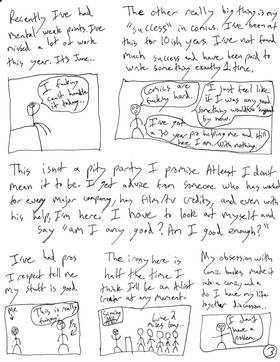 Recently I've had
mental week points. I've
missed a lot of work
this year. Its June...
I fucking
can't handle
it today...
The other really big thing is my
"success" in comics. I've been at
this for 10ish years. I've not found
much success and have been paid to
write something exactly 1 time.
Comics are
fucking hard.
I just feel like
if I was any good
something would've happened
by now.
I've got
a 30 year pro helping me and still
here I am.. With nothing.
This isnt a pity party I promise. At least I don't
mean it to be. I get advice from someone who has worked
for every major company, has film/tv credits, and even with
his help, I'm here. I have to look at myself and
say "am I any good? Am I good enough?"
I've had pros
I respect tell me
my stuff is good.
Me
This is really
funny.
The irony here is
half the time I
think I'll be an A-list
creator at any moment.
Signing
Line 2
miles long...
My obsession with
comic books, makes it
into a comic and a
do I have my life
together discussion..
I don't
have a
problem.
3